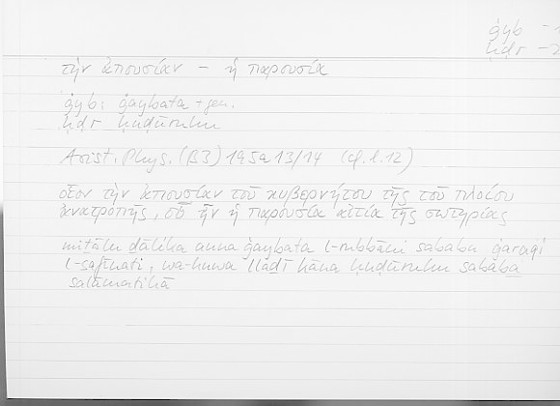 ġyb -
ḥḍr -
τὴν ἀπουσίαν – ἡ παρουσία
ġyb: ġaybata + gen.
ḥḍr ḥuḍūruhu
Arist. Phys. (B3) 195a13/14 (cf. l. 12)
οἷον τὴν ἀπουσίαν τοῦ κυβερνήτου τῆς τοῦ πλοίου
ἀνατροπῆς, οὗ ἦν ἡ παρουσία αἰτία τῆς σωτηρίας
miṯālu ḏālika anna ġaybata l-rubbāni sababu ġaraqi
l-safīnati, wa-huwa llaḏī kāna ḥuḍūruhu sababa
salāmatihā